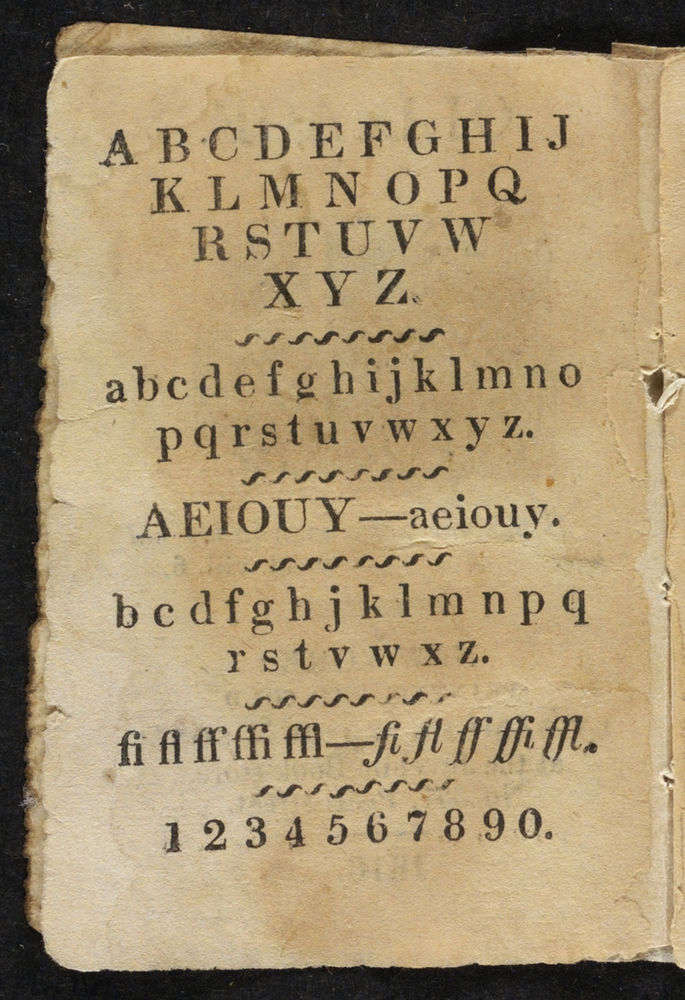 A B C D E F G H I J
K L M N O P Q
R S T U V W
X Y Z.
a b c d e f g h i j k l m n o
p q r s t u v w x y z.
AEIOUY—aeiouy.
b c d f g h j k l m n p q
r s t v w x z.
fi fl ff ffi ffl—fi fl ff ffi ffl.
1 2 3 4 5 6 7 8 9 0.